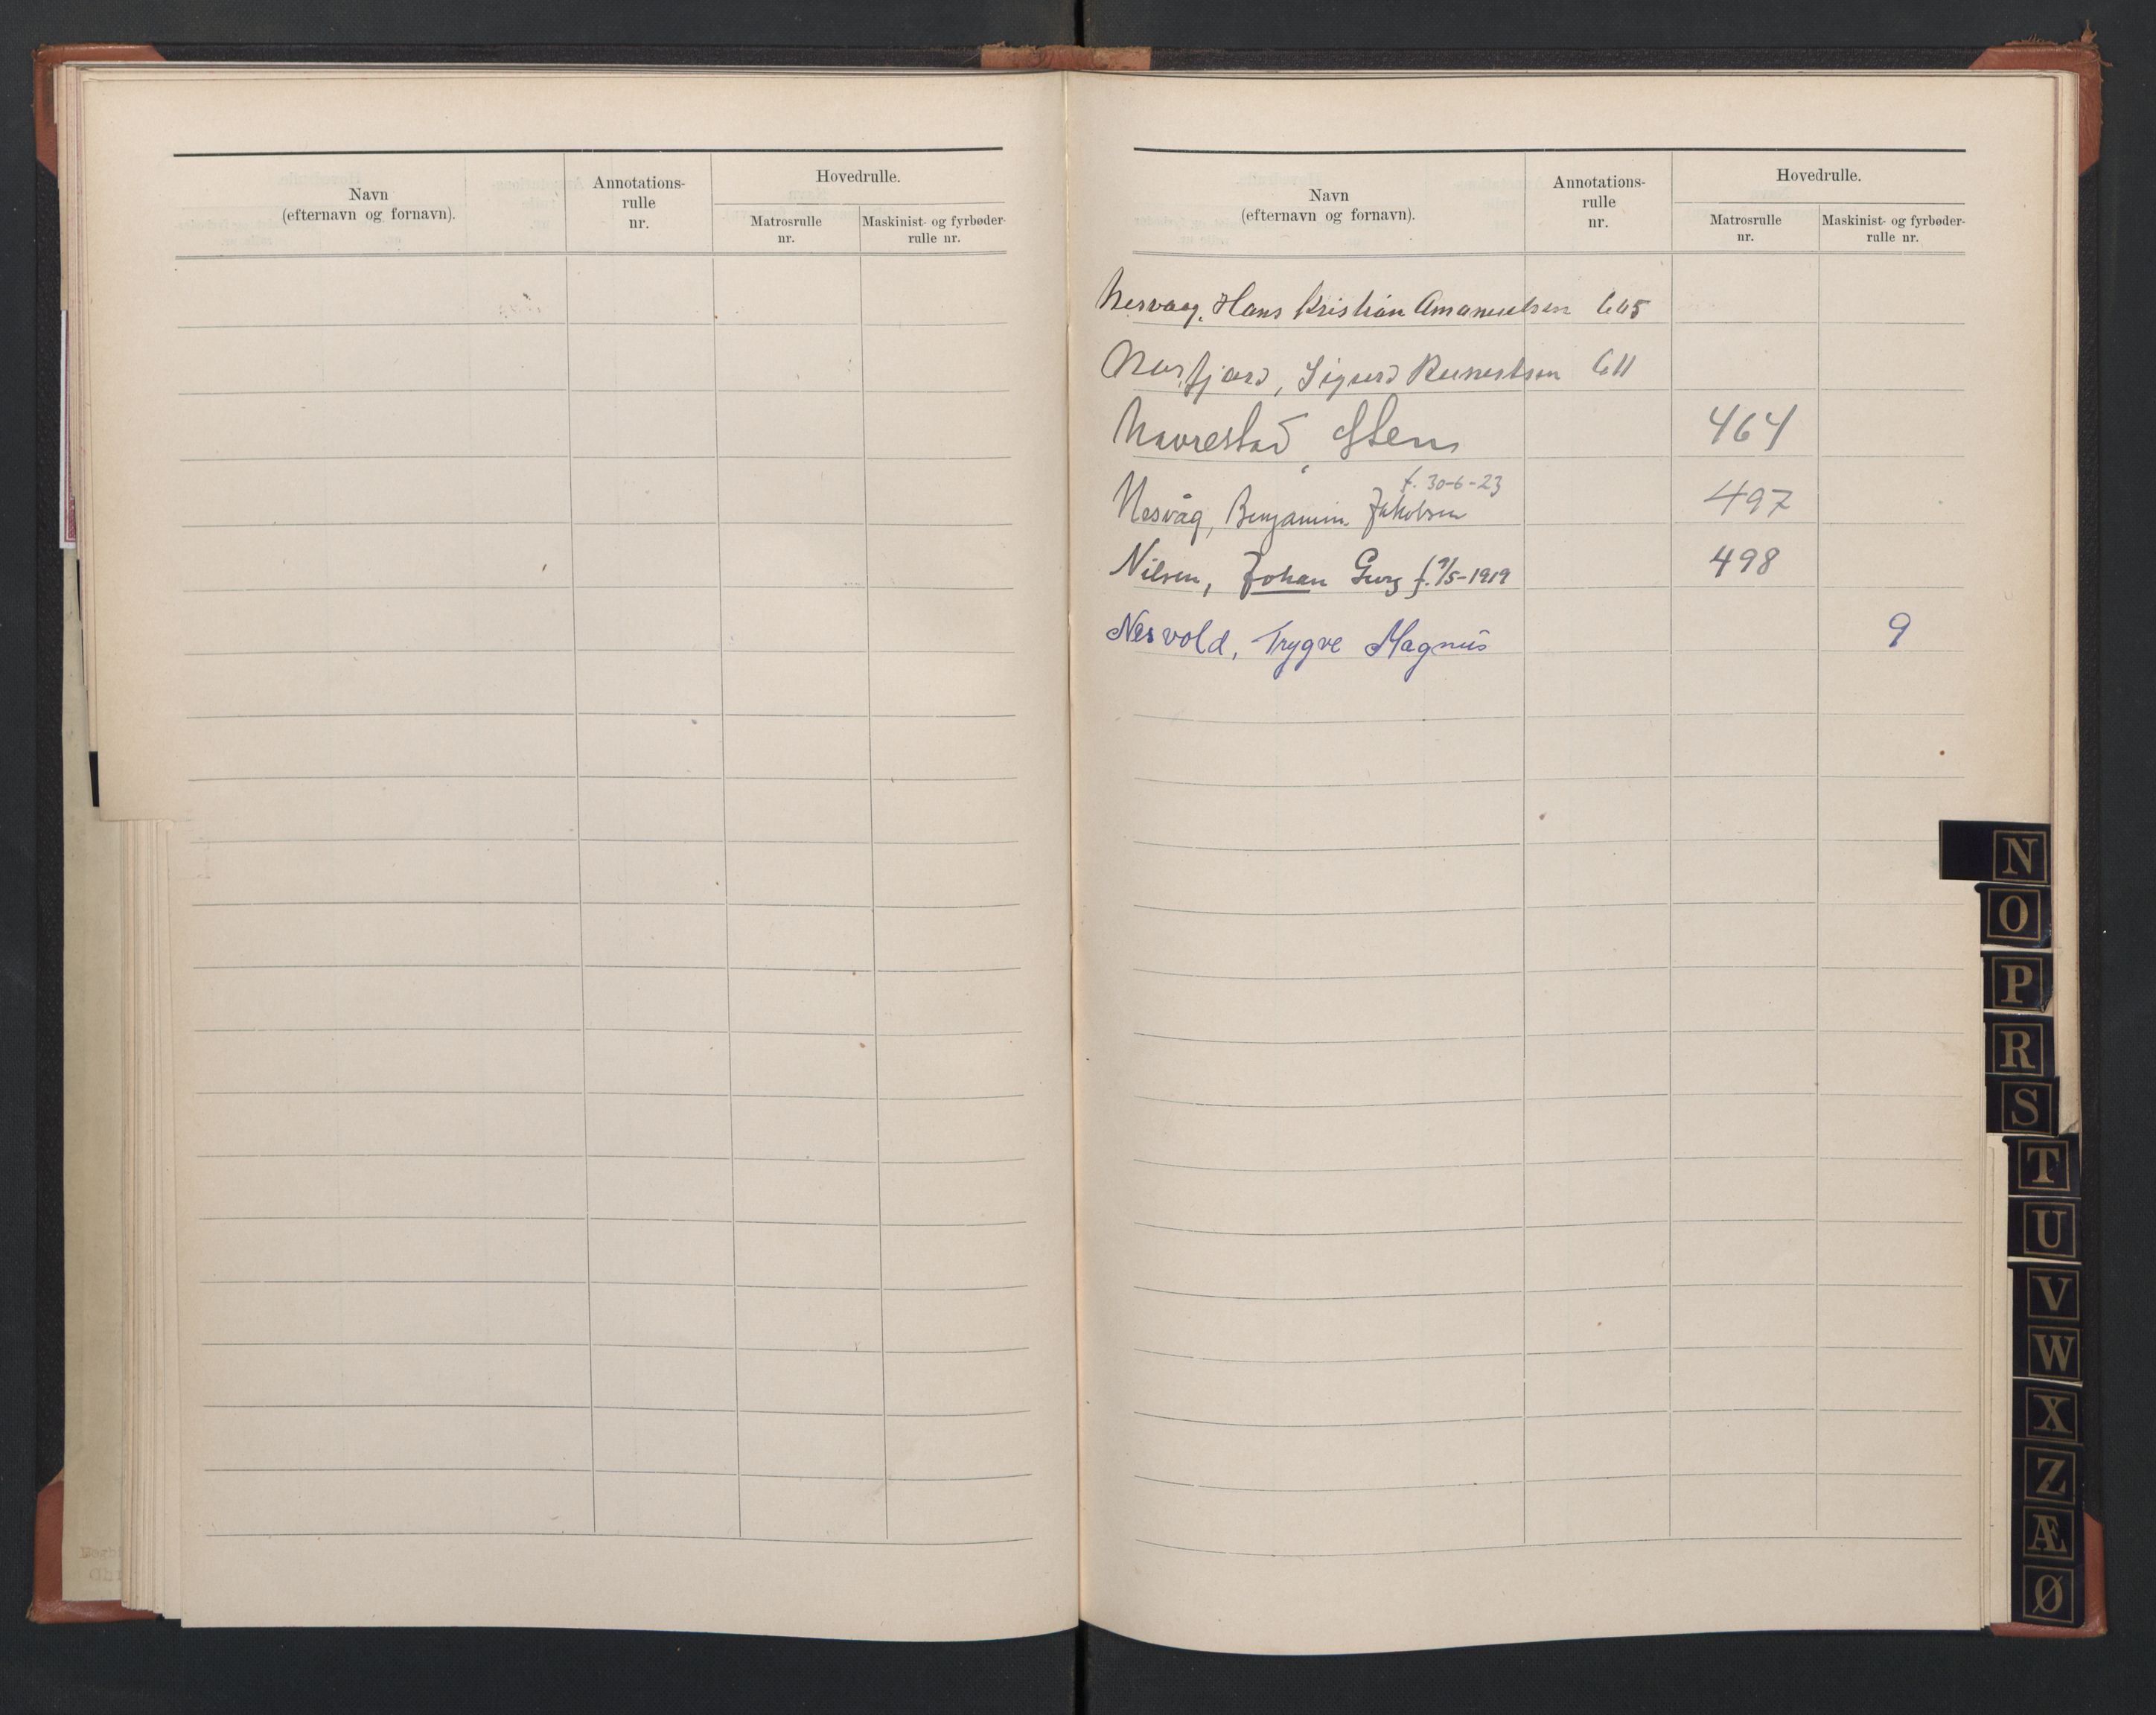 Navn
(efternavn og fornavn).
Annotations-
rulle
nr.
Hovedrulle.
Matrosrulle
nr.
Maskinist- og fyrbøder-
rulle nr.
Navn
(efternavn og fornavn).
Annotations-
rulle
nr.
Hovedrulle.
Matrosrulle
nr.
Maskinist- og fyrbøder-
rulle nr.
Nesvaag, Hans Kristian Amanuelsen 605
Sigurd 611
Navrestad, Sten 464
f. 30-6-23
Nesvåg, Benjamin Jakobsen 497
Nilsen, Johan Georg f. 9/5-1919 498
Nesvold, Trygve Magnus 9
N
O
P
R
S
T
U
V
W
X
Z
Æ
Ø